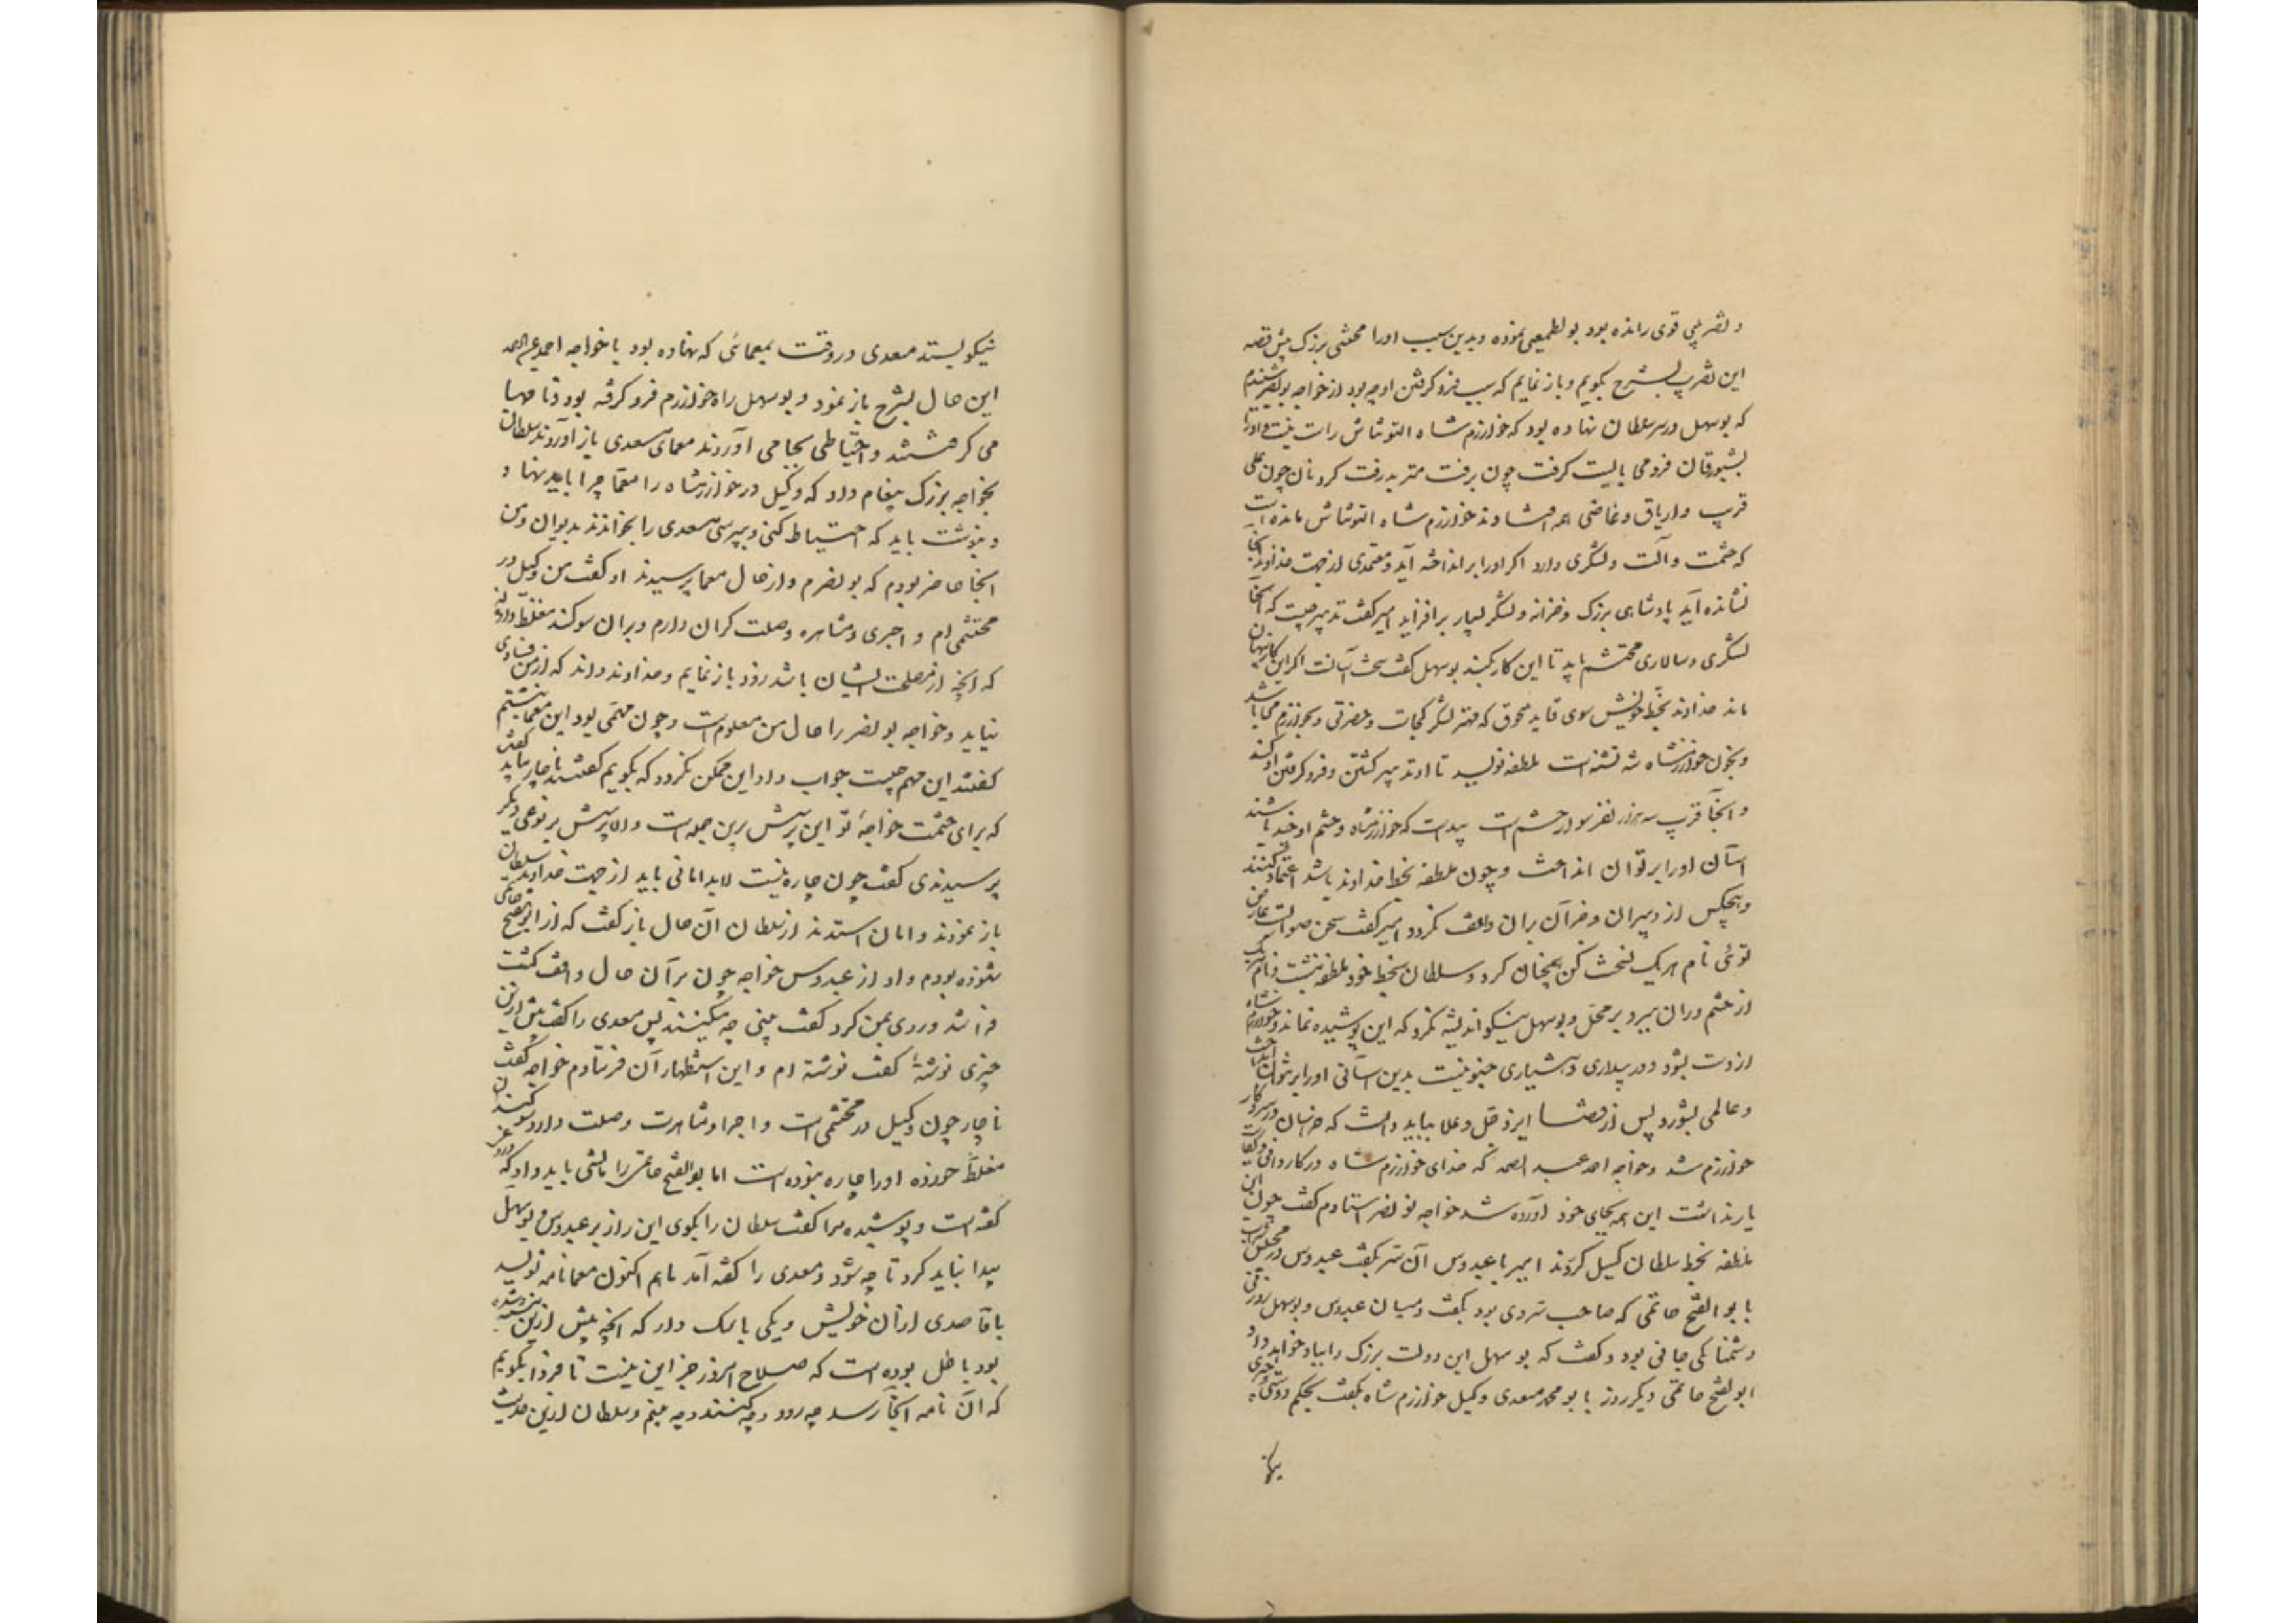 و تضریبی قوی رانده بود بولطمیعی نموده و بدین سبب اورا محنتی بزرک پیش قصه
این تضریب بشرح بکویم و باز نمایم که سبب فرو کرفتن او چه بود از خواجه بونصر شنیدم
که بوسهل در سر سلطان نهاده بود که خوارزم شاه التونتاش راست نیست و اورا
بشبورقان فرو می بایست کرفت چون برفت متربد رفت کردنان چون علی
قریب و اریاق و غاضی همه افتادند خوارزم شاه التونتاش مانده است
که حشمت و آلت و لشکری دارد اکر اورا برانداخته آید و معتمدی از جهت خداوند آنجا
نشانده آید پادشاهی بزرک و خزانه و لشکر بسیار برافزاید امیر کفت تدبیر چیست که آنجا
لشکری و سالاری محتشم باید تا این کار بکند بوسهل کفت سخت آسانست اکر این کار پنهان
ماند خداوند بخط خویش سوی قاید منجوق که مهتر لشکر کجات و حضرتی و بخوارزم می باشد
و بخون خوارزمشاه تشنه است ملطفه نویسد تا او تدبیر کشتن و فرو کرفتن او کند
و آنجا قریب سه هزار نفر سوار حشم است پیداست که خوارزمشاه و حشم او چند باشند
آسان اورا بر توان انداخت و چون ملطفه بخط خداوند باشد اعتماد کنند
و هیچکس از دبیران و جز آن بران واقف نکردد امیر کفت سخن صوابست عارض
توئی نام هریک نسخت کن همچنان کرد و سلطان بخط خود ملطفه نبشت و نام هریک
از حشم دران ببرد بر محل و بوسهل نیکو اندیشه نکرد که این پوشیده نماند و خوارزم شاه
از دست بشود و در بیداری و هشیاری چنو نیست بدین آسانی اورا بر نتوان انداخت
و عالمی بشورد پس از قضا ایزد جل و علا بباید دانست که خراسان در سر کار
خوارزم شد و خواجه احمد عبد الصمد که خدای خوارزم شاه در کاردانی و کفایت
یار نداشت این همه بجای خود آورده شد خواجه بونصر استادم کفت چون این
ملطفه بخط سلطان کسیل کردند امیر با عبدوس آن سر بکفت عبدوس در مجلس شراب
با بو الفتح حاتمی که صاحب سر وی بود بکفت و میان عبدوس و بوسهل زوزنی
دشمنایکی جانی بود و کفت که بوسهل این دولت بزرک را بباد خواهد داد
ابو لفتح حاتمی دیکر روز با بو محمد مسعدی وکیل خوارزم شاه بکفت بحکم دوستی و چیزی
نیکو بستد مسعدی در وقت بمعمائی که نهاده بود با خواجه احمد عبدالصمد
این حال بشرح باز نمود و بوسهل راه خوارزم فرو کرفته بود و نامها
می کرفتند و احتیاطی بجا می آوردند معمای مسعدی باز آوردند سلطان
بخواجه بزرک پیغام داد که وکیل در خوارزمشاه را معما چرا باید نهاد و
و نبشت باید که احتیاط کنی و بپرسی مسعدی را بخواندند بدیوان و من
آنجا حاضر بودم که بونصرم و از حال معما پرسیدند او کفت من وکیل در
محتشمی ام و اجری و مشاهره و صلت کران دارم و بران سوکند مغلظ داده اند
که آنچه از مصلحت ایشان باشد زود باز نمایم و خداوند داند که از من فسادی
نیاید و خواجه بونصر را حال من معلومست و چون مهمی بود این معما نبشتم
کفتند این مهم چیست جواب داد این ممکن نکردد که بکویم کفتند ناچار بباید کفت
که برای حشمت خواجۀ تو این پرسش برین جمله است و الا پرسش بر نوعی دیکر
پرسیدندی کفت چون چاره نیست لابد امانی باید از جهت خداوند سلطان
باز نمودند و امان استدند از سلطان آن حال باز کفت که از ابوالفتح حاتمی
شنوده بودم و او از عبدوس خواجه چون بر آن حال واقف کشت
فرا شد و روی بمن کرد کفت بینی چه میکنند پس مسعدی را کفت پیش ازین
چیزی نوشتۀ کفت نوشته ام و این استظهار آن فرستادم خواجه کفت
ناچار چون وکیل در محتشمی است و اجرا و مشاهرت و صلت دارد و سوکندان
مغلظ خورده اورا چاره نبوده است اما بوالفتح حاتمی را مالشی باید داد که دروغی
کفته است و پوشیده مرا کفت سلطان را بکوی این راز بر عبدوس و بوسهل
پیدا نباید کرد تا چه شود و مسعدی را کفته آمد تا هم اکنون معما نامه نویسد
با قاصدی ازان خویش و یکی با اسک دار که آنچه پیش ازین نبشته شده
بود باطل بوده است که صلاح امروز جز این نیست تا فردا بکویم
که آن نامه آنجا رسد چه رود و چه کنند و چه بینم و سلطان ازین حدیث